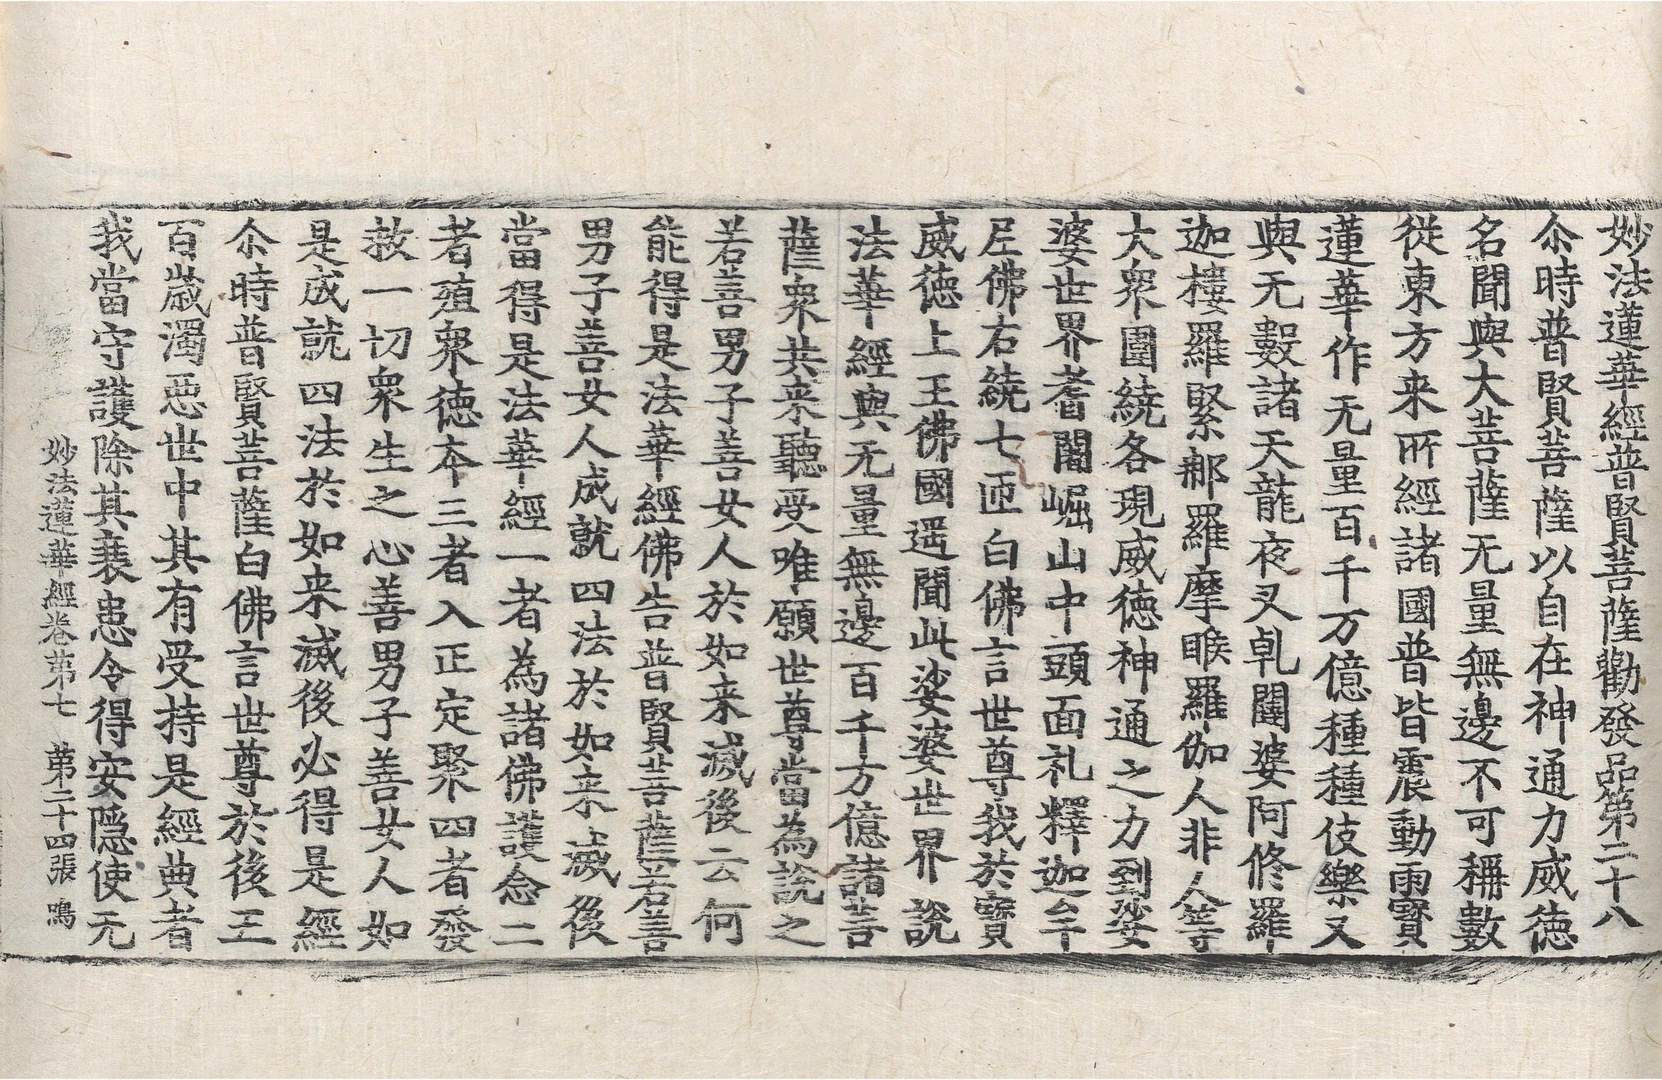 妙法蓮華經普賢菩薩勸發品第二十八
尒時普賢菩薩以自在神通力威徳
名聞與大菩薩无量無邊不可稱數
從東方来所經諸國普皆震動雨寳
蓮華作无量百千万億種種伎樂又
與无數諸天龍夜叉乹闥婆阿修羅
迦樓羅緊那羅摩睺羅伽人非人等
大衆圍繞各現威徳神通之力到娑
婆世界耆闍崛山中頭面礼釋迦牟
尼佛右繞七匝白佛言世尊我於寳
威徳上王佛國遥聞此娑婆世界說
法華經與无量無邊百千万億諸菩
薩衆共来聽受唯願世尊當為說之
若善男子善女人於如来滅後云何
能得是法華經佛告普賢菩薩若善
男子善女人成就四法於如来滅後
當得是法華經一者為諸佛護念二
者殖衆徳本三者入正定聚四者發
救一切衆生之心善男子善女人如
是成就四法於如来滅後必得是經
尒時普賢菩薩白佛言世尊於後五
百歲濁惡世中其有受持是經典者
我當守護除其衰患令得安隱使无
妙法蓮華經卷第七 第二十四張 鳴